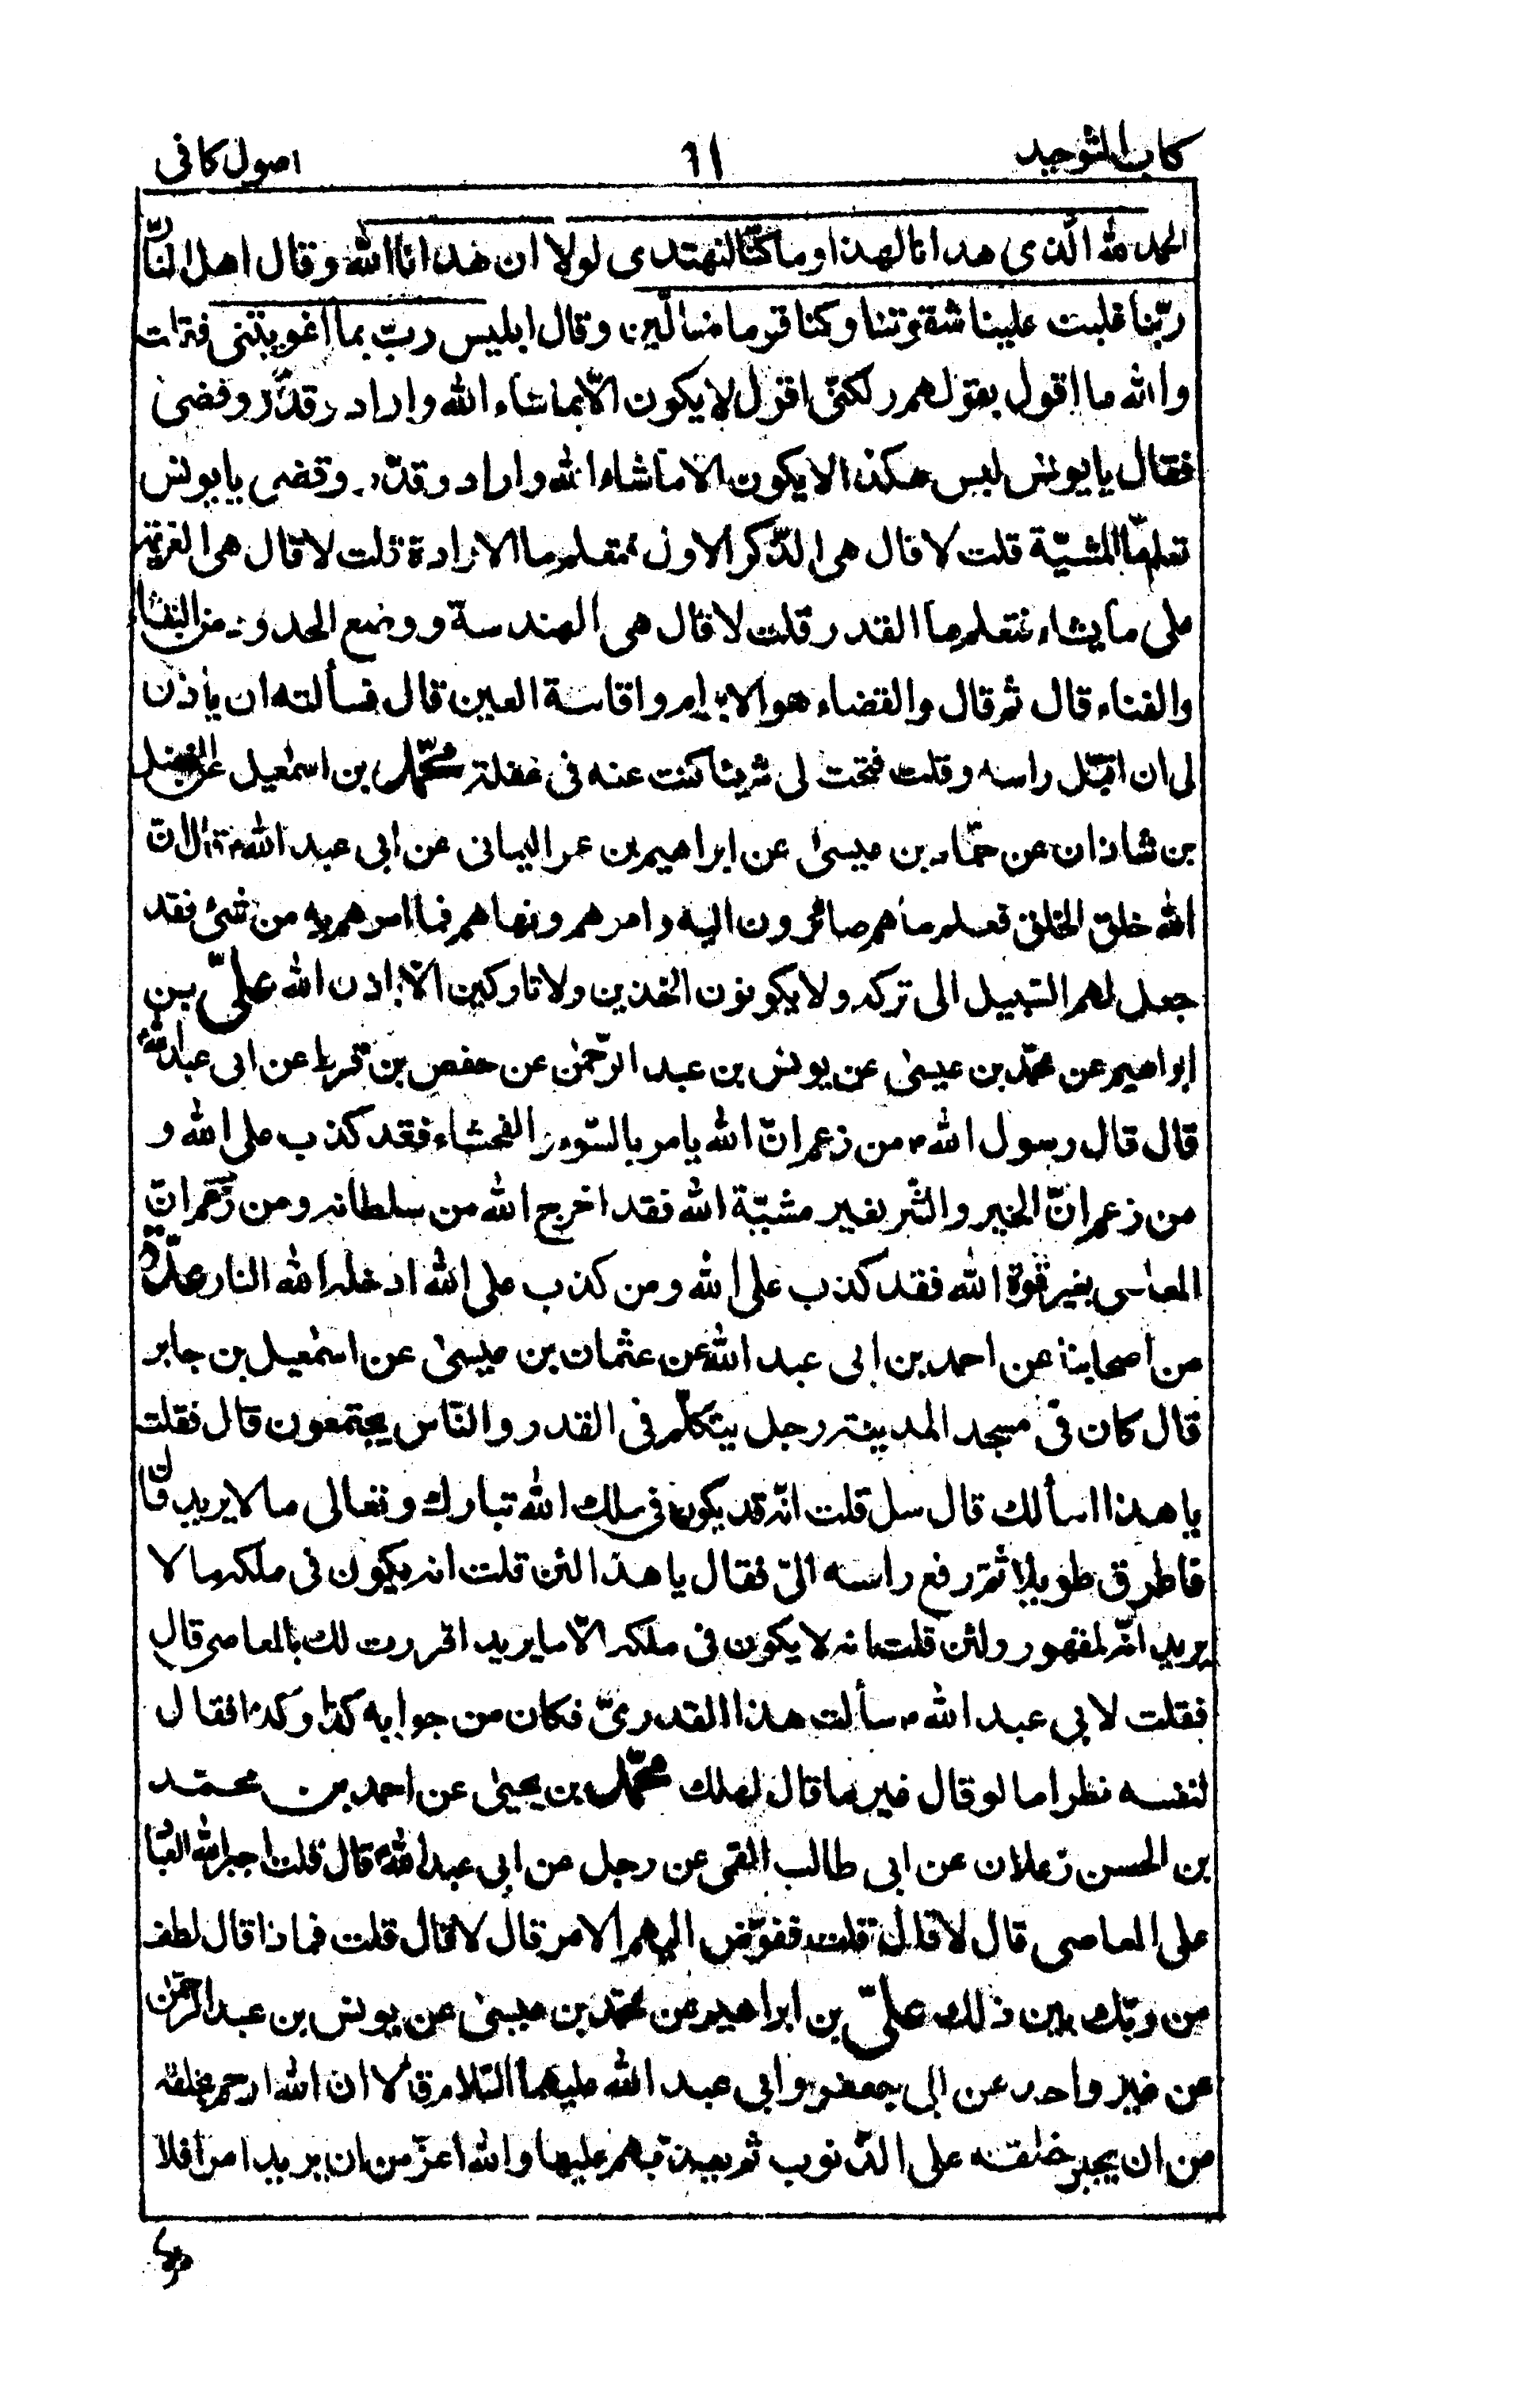 كتاب التوحيد ٦١ اصول كافى
الحمد لله الّذى هدانا لهذا وما كنّا لنهتدى لولا ان هدانا الله وقال اهل النّار
ربّنا غلبت علينا شقوتنا وكنا قوما ضالّين وقال ابليس ربّ بما اغويتنى فقلت
والله ما اقول بقولهم ولكنّى اقول لا يكون الّا بما شاء الله واراد وقدّر وقضى
فقال يا يونس ليس هكذا لا يكون الا ما شاء الله واراد وقدّر وقضى يا يونس
تعلم ما المشيّة قلت لا قال هى الذّكر الاول فتعلم ما الارادة قلت لا قال هى العزيمة
على ما يشاء فتعلم ما القدر قلت لا قال هى الهندسة ووضع الحدود من البقاء
والفناء قال ثم قال والقضاء هو الابرام واقامة العين قال فسألته ان يأذن
لى ان اقبّل راسه وقلت فتحت لى شيئا كنت عنه فى غفلة محمّد بن اسمعيل عن الفضل
بن شاذان عن حمّاد بن عيسى عن ابراهيم بن عمر اليمانى عن ابى عبد الله ع قال انّ
الله خلق الخلق فعلم ما هم صائرون اليه وامرهم ونهاهم فما امرهم به من شئ فقد
جعل لهم السّبيل الى تركه ولا يكونون اخذين ولا تاركين الّا باذن الله علىّ بن
ابراهيم عن محمّد بن عيسى عن يونس بن عبد الرّحمن عن حفص بن قرط عن ابى عبد الله ع
قال قال رسول الله ص من زعم انّ الله يامر بالسّوء والفحشاء فقد كذب على الله و
من زعم انّ الخير والشّر بغير مشيّة الله فقد اخرج الله من سلطانه ومن زعم انّ
المعاصى بغير قوّة الله فقد كذب على الله ومن كذب على الله ادخله الله النار عدّة
من اصحابنا عن احمد بن ابى عبد الله عن عثمان بن عيسى عن اسمعيل بن جابر
قال كان فى مسجد المدينة رجل يتكلّم فى القدر والنّاس يجتمعون قال فقلت
يا هذا اسألك قال سل قلت انّه قد يكون فى ملك الله تبارك وتعالى ما لا يريد قال
فاطرق طويلا ثمّ رفع راسه الىّ فقال يا هذا لئن قلت انه يكون فى ملكه ما لا
يريد انّه لمقهور ولئن قلت انه لا يكون فى ملكه الّا ما يريد اقررت لك بالمعاصى قال
فقلت لابى عبد الله ع سألت هذا القدرىّ فكان من جوابه كذا وكذا فقال
لنفسه نظر اما لو قال غير ما قال لهلك محمّد بن يحيى عن احمد بن محمد
بن الحسن زعلان عن ابى طالب القمى عن رجل عن ابى عبد الله ع قال قلت اجبر الله العباد
على المعاصى قال لا قال قلت ففوّض اليهم الامر قال لا قال قلت فماذا قال لطف
من ربّك بين ذلك علىّ بن ابراهيم عن محمّد بن عيسى عن يونس بن عبد الرحمن
عن غير واحد عن ابى جعفر وابى عبد الله عليهما السّلام قالا ان الله ارحم بخلقه
من ان يجبر خلقه على الذّنوب ثم يعذّبهم عليها والله اعزّ من ان يريد امرا فلا